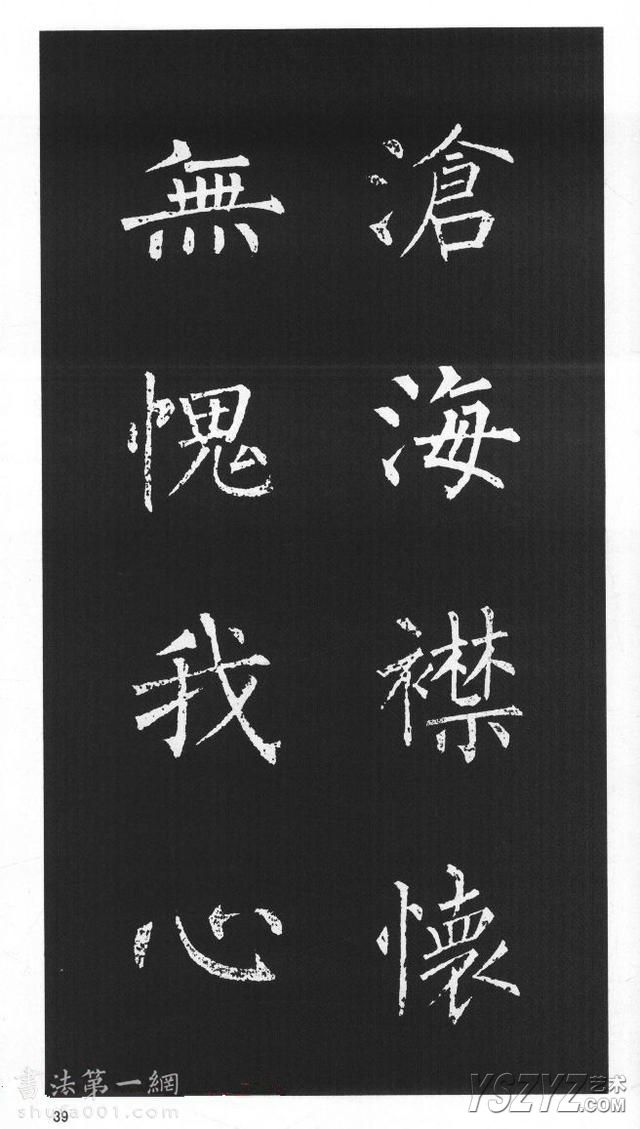 滄海襟懷
無愧我心
書法第一網
shufa001.com
YSZYZ艺术
.COM
39